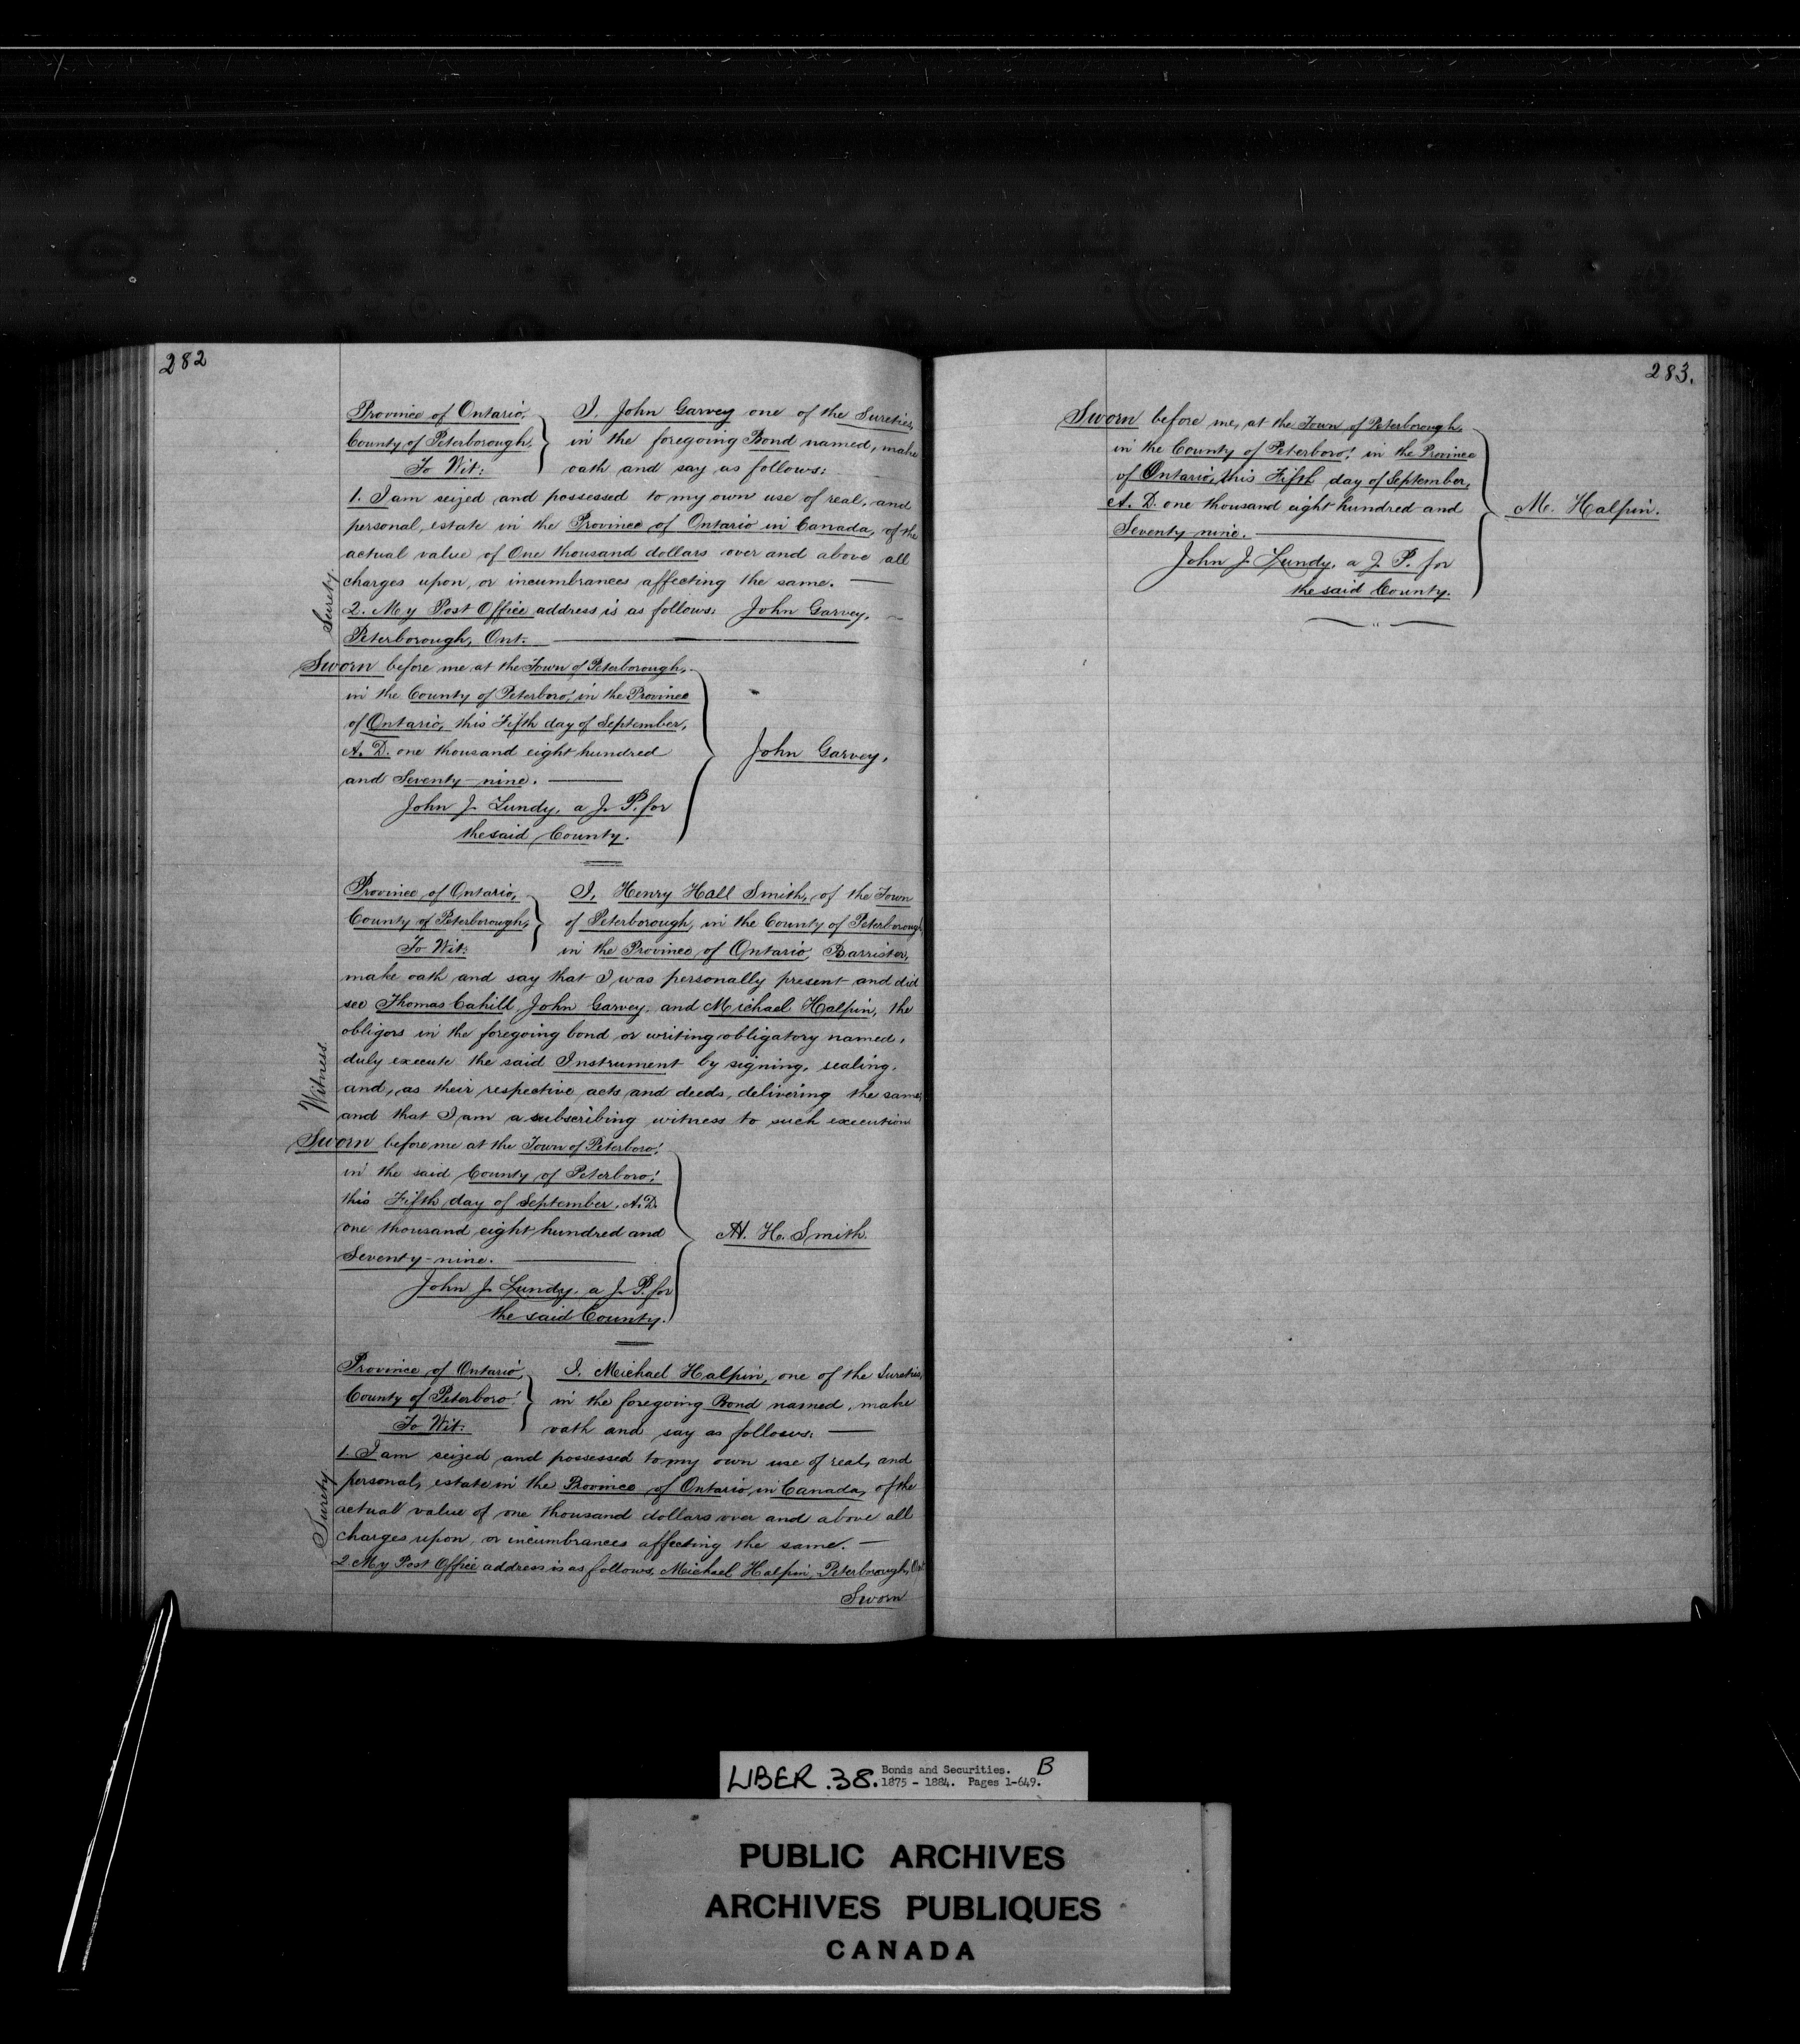 282
Province of Ontario, I, John Garvey one of the Sureties,
County of Peterborough, in the foregoing Bond named, make
To Wit: oath and say as follows:
1. I am seized and possessed to my own use of real, and
personal, estate in the Province of Ontario in Canada, of the
actual value of One thousand dollars over and above all
charges upon, or incumbrances affecting the same. —
Surety
2. My Post Office address is as follows: John Garvey,
Peterborough, Ont.
Sworn before me at the Town of Peterborough,
in the County of Peterboro', in the Province
of Ontario, this Fifth day of September,
A. D. one thousand eight hundred
John Garvey,
and Seventy-nine. —
John J. Lundy, a J. P. for
the said County.
Province of Ontario, I, Henry Hall Smith, of the Town
County of Peterborough, of Peterborough, in the County of Peterborough,
To Wit: in the Province of Ontario, Barrister,
make oath and say that I was personally present and did
see Thomas Cahill, John Garvey, and Michael Halpin, the
obligors in the foregoing bond or writing obligatory named,
duly execute the said Instrument by signing, sealing,
Witness
and, as their respective acts and deeds, delivering the same,
and that I am a subscribing witness to such execution
Sworn before me at the Town of Peterboro',
in the said County of Peterboro',
this Fifth day of September, A.D.
one thousand eight hundred and
H. H. Smith.
Seventy-nine. —
John J. Lundy, a J. P. for
the said County.
Province of Ontario, I, Michael Halpin, one of the Sureties,
County of Peterboro' in the foregoing Bond named, make
To Wit: oath and say as follows: —
1. I am seized and possessed to my own use of real, and
personal, estate in the Province of Ontario, in Canada, of the
Surety
actual value of one thousand dollars over and above all
charges upon, or incumbrances affecting the same. —
2. My Post Office address is as follows, Michael Halpin, Peterborough, Ont
Sworn
283.
Sworn before me, at the Town of Peterborough,
in the County of Peterboro', in the Province
of Ontario, this Fifth day of September,
A. D. one thousand eight hundred and
M. Halpin.
Seventy-nine. —
John J. Lundy, a J. P. for
the said County.
LIBER .38. Bonds and Securities. B
1875 - 1884. Pages 1-649.
PUBLIC ARCHIVES
ARCHIVES PUBLIQUES
CANADA